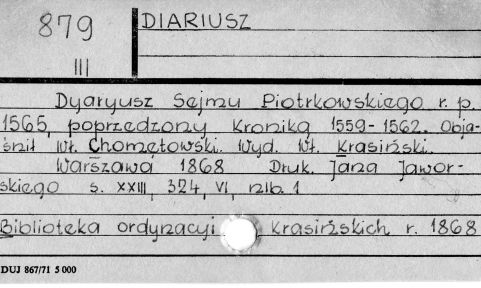 879
III
DIARIUSZ
Dyaryusz Sejmu Piotrkowskiego r. p.
1565, poprzedzony Kroniką 1559-1562. Obja-
śnił Wł. Chomętowski. Wyd. Wł. Krasiński.
Warszawa 1868 Druk. Jana Jawor-
skiego s. XXIII, 324, VI, nlb. 1
Biblioteka ordynacyi Krasińskich r. 1868
DUJ 867/71 5 000